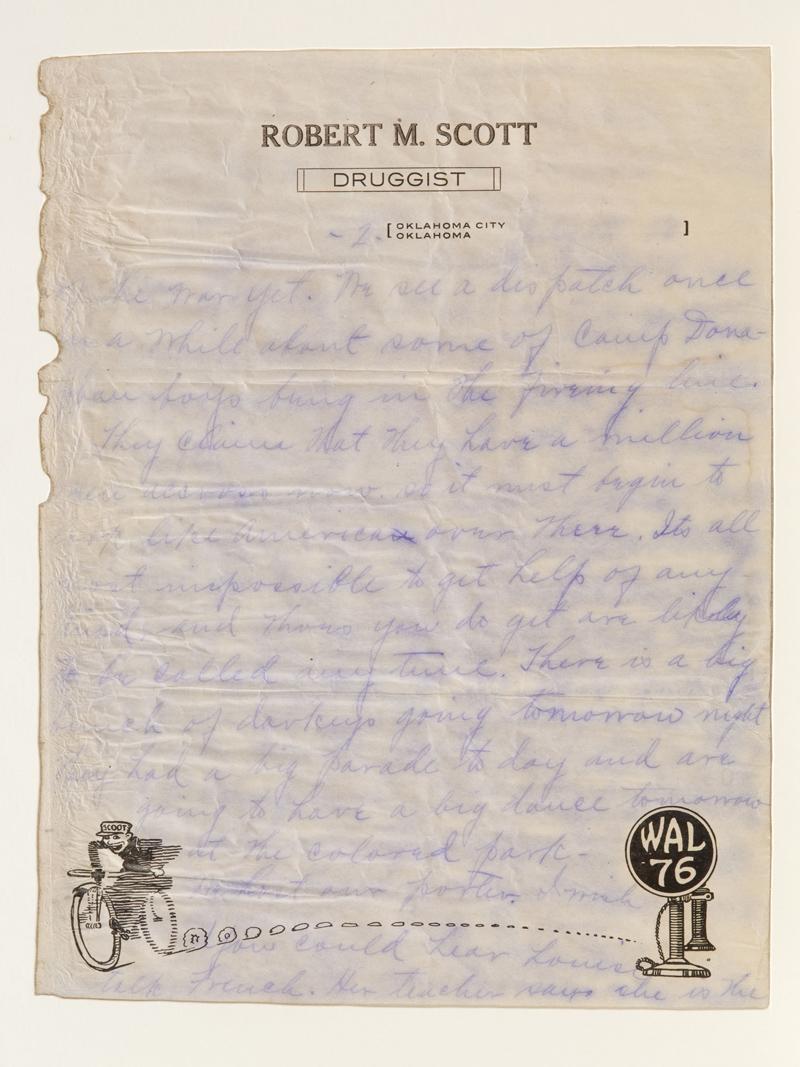 ROBERT M. SCOTT
DRUGGIST
- 2 - [ OKLAHOMA CITY
OKLAHOMA ]
the war yet. We see a dispatch once
a while about some of Camp Dona-
boys being in the fireing line.
They claim that they have a million
men across now. so it must begin to
like America over there. Its all
most impossible to get help of any
kind, and thoes you do get are likely
to be called any time. There is a big
bunch of darkeys going tomorrow night
they had a big parade to day and are
going to have a big dance tomorrow
SCOOT
at the colored park-
WAL
76
We lost our porter. I wish
you could hear Louise
talk French. Her teacher says she is the